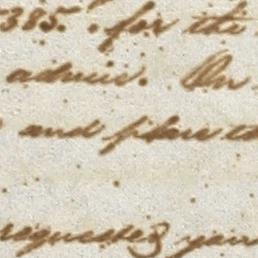 385. for the
admir. On
and plan to
requested your